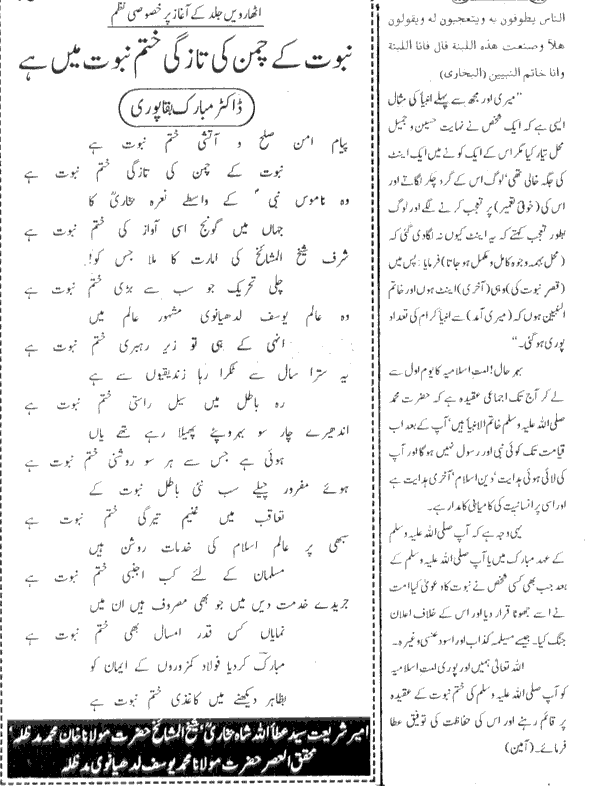 الناس يطوفون به ويتعجبون له ويقولون
هلاّ وضعت هذه اللبنة قال فانا اللبنة
وانا خاتم النبيين (البخارى)
”میری اور مجھ سے پہلے انبیاً کی مثال
ایسی ہے کہ ایک شخص نے نہایت حسین و جمیل
محل تیار کیا مگر اس کے ایک کونے میں ایک اینٹ
کی جگہ خالی تھی‘ لوگ اس کے گرد چکر لگاتے اور
اس کی (خوبی تعمیر) پر تعجب کرنے لگے اور لوگ
بطور تعجب کہتے کہ یہ اینٹ کیوں نہ لگادی گئی کہ
(محل بہمہ وجوہ کامل و مکمل ہوجاتا) فرمایا: پس میں
(قصر نبوت کی) وہی (آخری) اینٹ ہوں اور خاتم
النبیین ہوں کہ (میری آمد) سے انبیاً کرام کی تعداد
پوری ہوگئی۔“
بہر حال! امت اسلامیہ کا یوم اول سے
لے کر آج تک اجماعی عقیدہ ہے کہ حضرت محمد
صلی اللہ علیہ وسلم خاتم الانبیاً ہیں‘ آپ کے بعد اب
قیامت تک کوئی نبی اور رسول نہیں ہوگا اور آپ
کی لائی ہوئی ہدایت ’دین اسلام‘ آخری ہدایت ہے
اور اسی پر انسانیت کی کامیابی کا مدار ہے۔
یہی وجہ ہے کہ آپ صلی اللہ علیہ وسلم
کے عہد مبارک میں یا آپ صلی اللہ علیہ وسلم کے
بعد جب بھی کسی شخص نے نبوت کا دعویٰ کیا امت
نے اسے جھوٹا قرار دیا اور اس کے خلاف اعلان
جنگ کیا۔ جیسے مسیلمہ کذاب اور اسود عنسی وغیرہ۔
اللہ تعالیٰ ہمیں اور پوری امت اسلامیہ
کو آپ صلی اللہ علیہ وسلم کی ختم نبوت کے عقیدہ
پر قائم رہنے اور اس کی حفاظت کی توفیق عطا
فرمائے۔ (آمین)
اٹھارویں جلد کے آغاز پر خصوصی نظم
نبوت کے چمن کی تازگی ختم نبوت میں ہے
ڈاکٹر مبارک بقاپوری
پیام امن صلح و آتشی ختم نبوت ہے
نبوت کے چمن کی تازگی ختم نبوت ہے
وہ ناموس نبی ؐ کے واسطے نعرہ بخاریؒ کا
جہاں میں گونج اسی آواز کی ختم نبوت ہے
شرف شیخ المشائخ کی امارت کا ملا جس کو!
چلی تحریک جو سب سے بڑی ختم نبوت ہے
وہ عالم یوسف لدھیانوی مشہور عالم میں
انہی کے ہی تو زیر رہبری ختم نبوت ہے
یہ سترا سال سے ٹکرا رہا زندیقیوں سے ہے
رہ باطل میں سیل راستی ختم نبوت ہے
اندھیرے چار سو بہروپئے پھیلا رہے تھے یاں
ہوئی ہے جس سے ہر سو روشنی ختم نبوت ہے
ہوئے مفرور چیلے سب نبی باطل نبوت کے
تعاقب میں غنیم تیرگی ختم نبوت ہے
سبھی پر عالم اسلام کی خدمات روشن ہیں
مسلماں کے لئے کب اجنبی ختم نبوت ہے
جریدے خدمت دیں میں جو بھی مصروف ہیں ان میں
نمایاں کس قدر امسال بھی ختم نبوت ہے
مبارک کردیا فولاد کمزوروں کے ایماں کو
بظاہر دیکھنے میں کاغذی ختم نبوت ہے
امیر شریعت سید عطأ اللہ شاہ بخاریؒ شیخ المشائخ حضرت مولانا خان محمد مدظلہ‘
محقق العصر حضرت مولانا محمد یوسف لدھیانوی مدظلہ